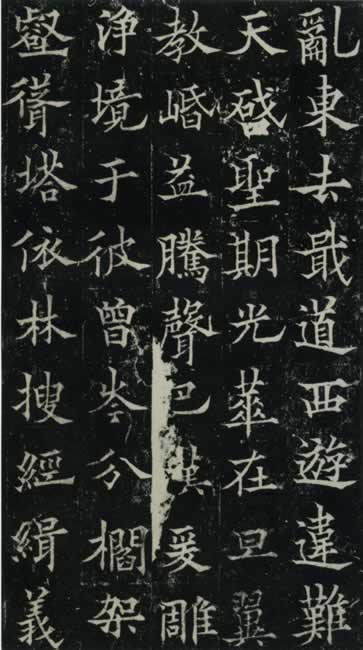 亂東去戢道西遊違難
天啓聖期光華在旦翼
教崏益騰聲巴漢爰雕
淨境于彼曾岑分櫩架
壑聳塔依林搜經緝義